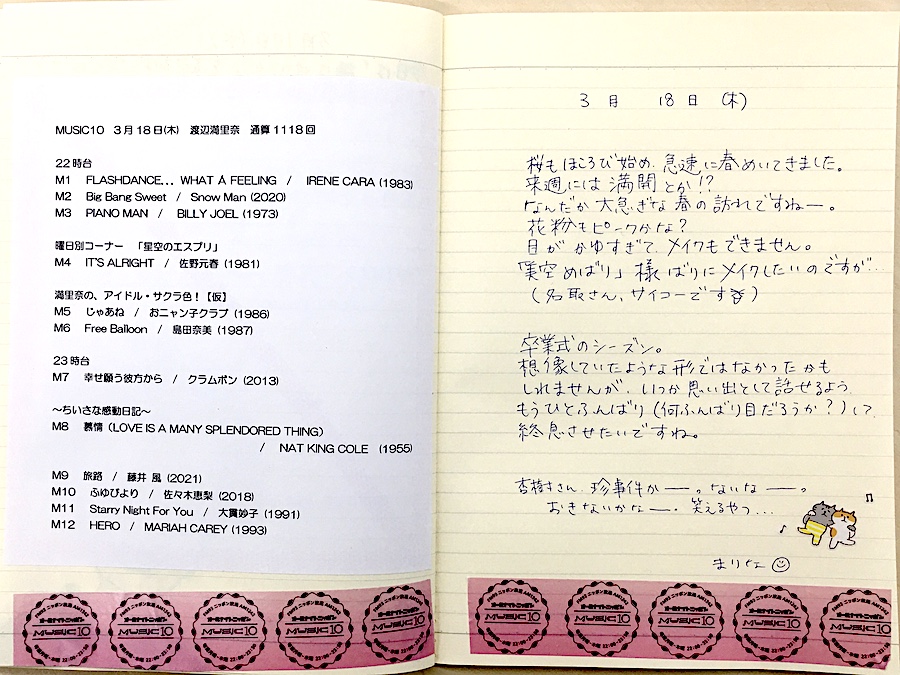 MUSIC10 3月18日(木) 渡辺満里奈 通算1118回
22時台
M1 FLASHDANCE... WHAT A FEELING / IRENE CARA (1983)
M2 Big Bang Sweet / Snow Man (2020)
M3 PIANO MAN / BILLY JOEL (1973)
曜日別コーナー 「星空のエスプリ」
M4 IT'S ALRIGHT / 佐野元春 (1981)
満里奈の、アイドル・サクラ色!【仮】
M5 じゃあね / おニャン子クラブ (1986)
M6 Free Balloon / 島田奈美 (1987)
23時台
M7 幸せ願う彼方から / クラムボン (2013)
~ちいさな感動日記~
M8 慕情 (LOVE IS A MANY SPLENDORED THING)
/ NAT KING COLE (1955)
M9 旅路 / 藤井 風 (2021)
M10 ふゆびより / 佐々木恵梨 (2018)
M11 Starry Night For You / 大貫妙子 (1991)
M12 HERO / MARIAH CAREY (1993)
3月 18日 (木)
桜もほころび始め、急速に春めいてきました。
来週には満開とか!?
なんだか大急ぎな春の訪れですねー。
花粉もピークかな?
目がかゆすぎて、メイクもできません。
「美空めばり」様ばりにメイクしたいのですが…
(名取さん、サイコーです)
卒業式のシーズン。
想像していたような形ではなかったかも
しれませんが、いつか思い出として話せるよう
もうひとふんばり(何ふんばり目だろうか?)して、
終息させたいですね。
杏樹さん、珍事件かー。ないなー。
おきないかなー。笑えるやつ...
まりな
オールナイトニッポン
MUSIC10
MUSIC10
MUSIC10
MUSIC10
MUSIC10
MUSIC10
MUSIC10
MUSIC10
MUSIC10
MUSIC10